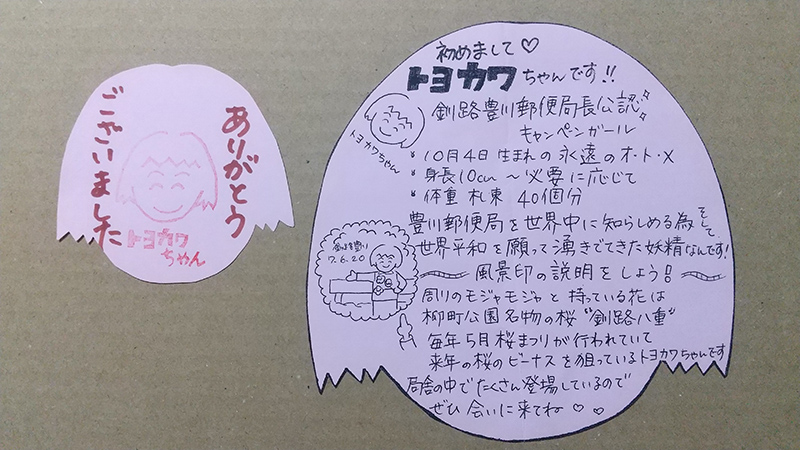 ありがとう
ございました
トヨカワ
ちゃん
初めまして♡
トヨカワちゃんです!!
釧路豊川郵便局長公認
キャンペンガール
トヨカワちゃん
*10月4日生まれの永遠のオ・ト・メ
*身長10cm〜必要に応じて
*体重 札束 40個分
豊川郵便局を世界中に知らしめる為そして
世界平和を願って湧きでてきた妖精なんです!
風景印の説明をしよう!
17.6.20
周りのモジャモジャと持っている花は
柳町公園名物の桜“釧路八重”
毎年5月桜まつりが行われていて
来年の桜のビーナスを狙っているトヨカワちゃんです
局舎の中でたくさん登場しているので
ぜひ会いに来てね♡♡